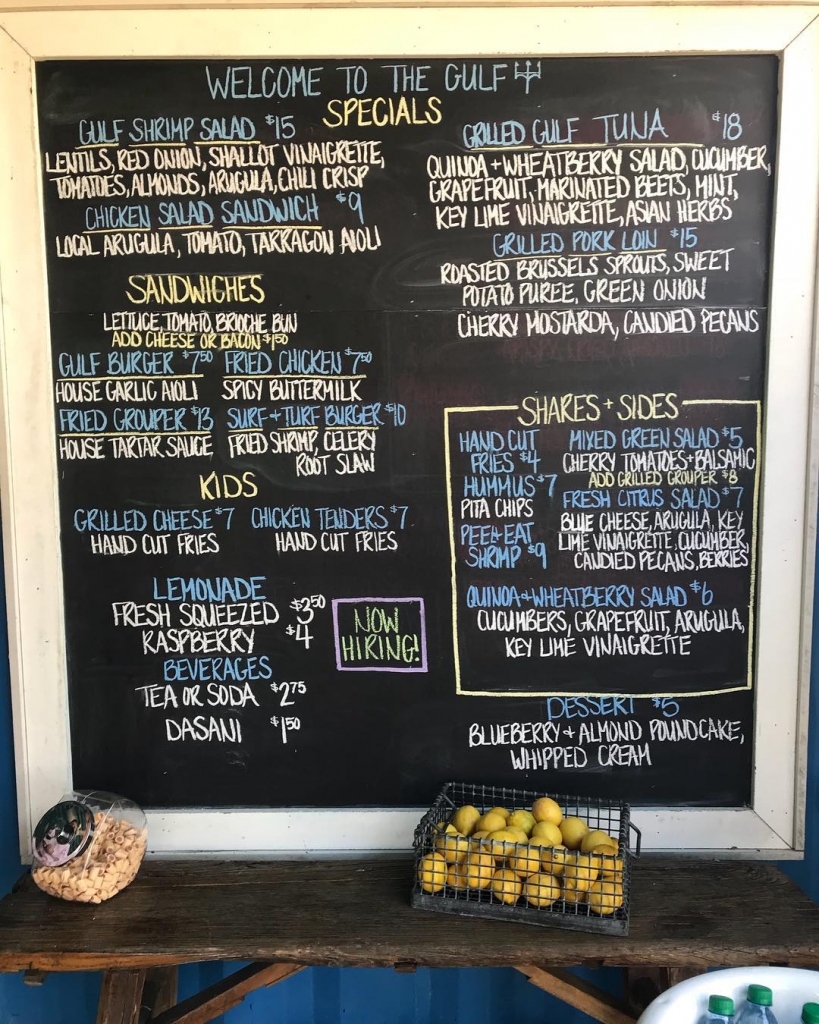 WELCOME TO THE GULF
SPECIALS
GULF SHRIMP SALAD $15
LENTILS, RED ONION, SHALLOT VINAIGRETTE,
TOMATOES, ALMONDS, ARUGULA, CHILI CRISP
CHICKEN SALAD SANDWICH $9
LOCAL ARUGULA, TOMATO, TARRAGON AIOLI
GRILLED GULF TUNA $18
QUINOA + WHEATBERRY SALAD, CUCUMBER,
GRAPEFRUIT, MARINATED BEETS, MINT,
KEY LIME VINAIGRETTE, ASIAN HERBS
GRILLED PORK LOIN $15
ROASTED BRUSSELS SPROUTS, SWEET
POTATO PUREE, GREEN ONION
CHERRY MOSTARDA, CANDIED PECANS
SANDWICHES
LETTUCE, TOMATO, BRIOCHE BUN
ADD CHEESE OR BACON $1.50
GULF BURGER $7.50
HOUSE GARLIC AIOLI
FRIED CHICKEN $7.50
SPICY BUTTERMILK
FRIED GROUPER $13
HOUSE TARTAR SAUCE
SURF + TURF BURGER $10
FRIED SHRIMP, CELERY
ROOT SLAW
KIDS
GRILLED CHEESE $7
HAND CUT FRIES
CHICKEN TENDERS $7
HAND CUT FRIES
LEMONADE
FRESH SQUEEZED $3.50
RASPBERRY $4
BEVERAGES
TEA OR SODA $2.75
DASANI $1.50
NOW
HIRING!
SHARES + SIDES
HAND CUT
FRIES $4
HUMMUS $7
PITA CHIPS
PEEL + EAT
SHRIMP $9
MIXED GREEN SALAD $5
CHERRY TOMATOES + BALSAMIC
ADD GRILLED GROUPER $8
FRESH CITRUS SALAD $7
BLUE CHEESE, ARUGULA, KEY
LIME VINAIGRETTE, CUCUMBER,
CANDIED PECANS, BERRIES
QUINOA + WHEATBERRY SALAD $6
CUCUMBERS, GRAPEFRUIT, ARUGULA,
KEY LIME VINAIGRETTE
DESSERT $5
BLUEBERRY + ALMOND POUNDCAKE,
WHIPPED CREAM